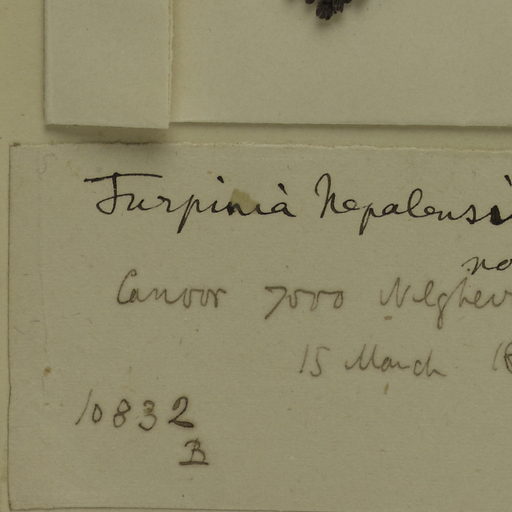 Turpinia Nepalensi
no
Canoor 7000 Nilgher
15 March 18
10832
B